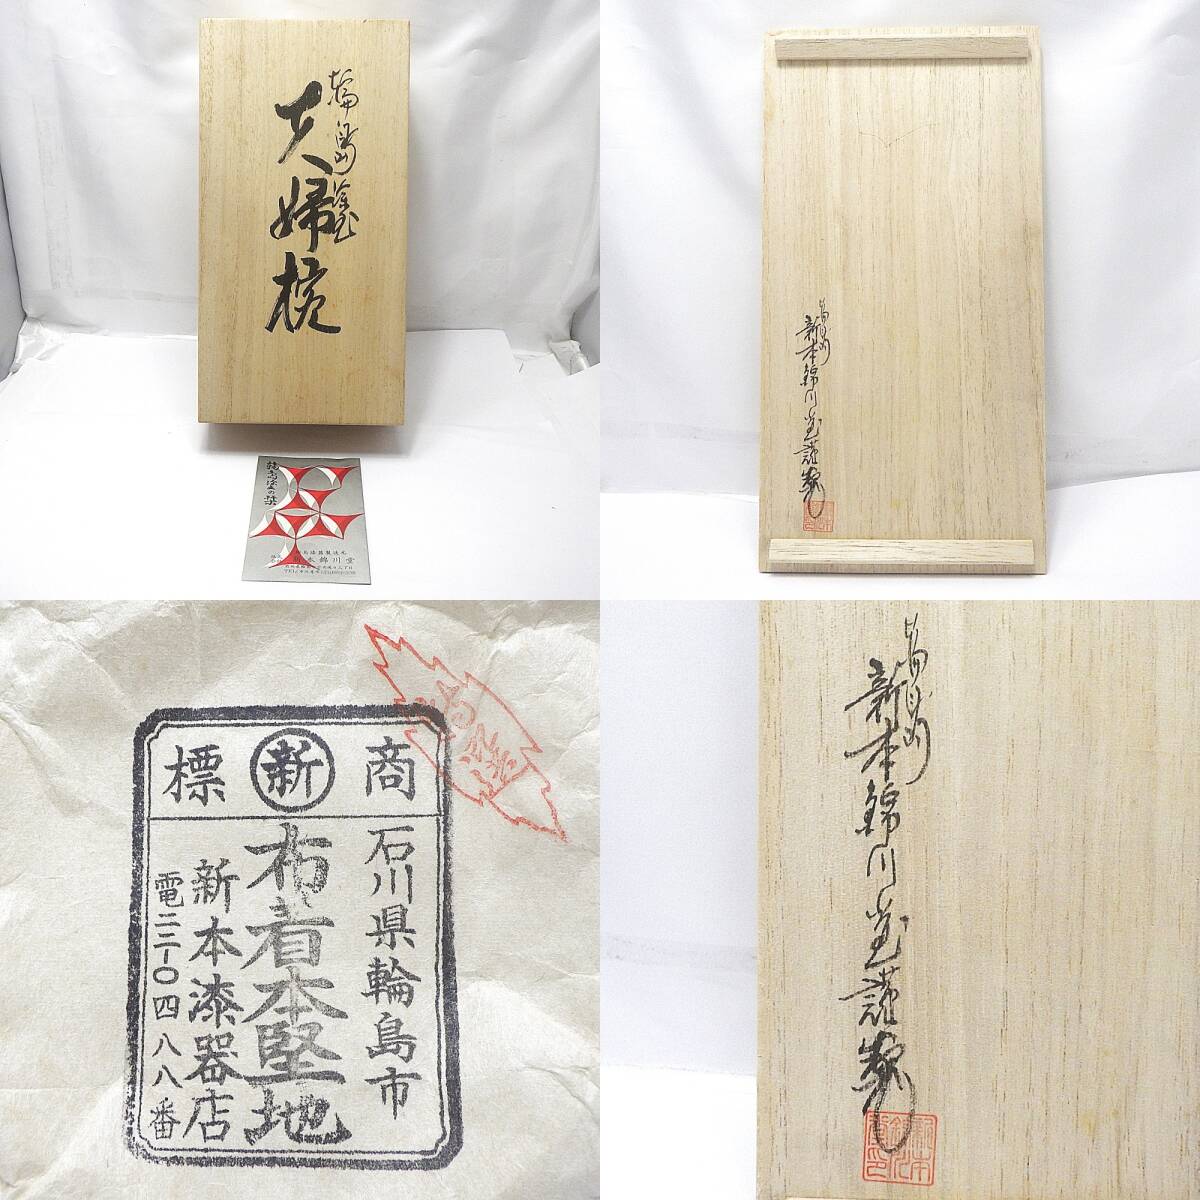 輪島塗
夫婦椀
輪島塗の栞
新本錦川堂
輪島
新本錦川堂謹製
商 新 標
石川県輪島市
布着本堅地
新本漆器店
電二二-〇四八八番
輪島
新本錦川堂謹製